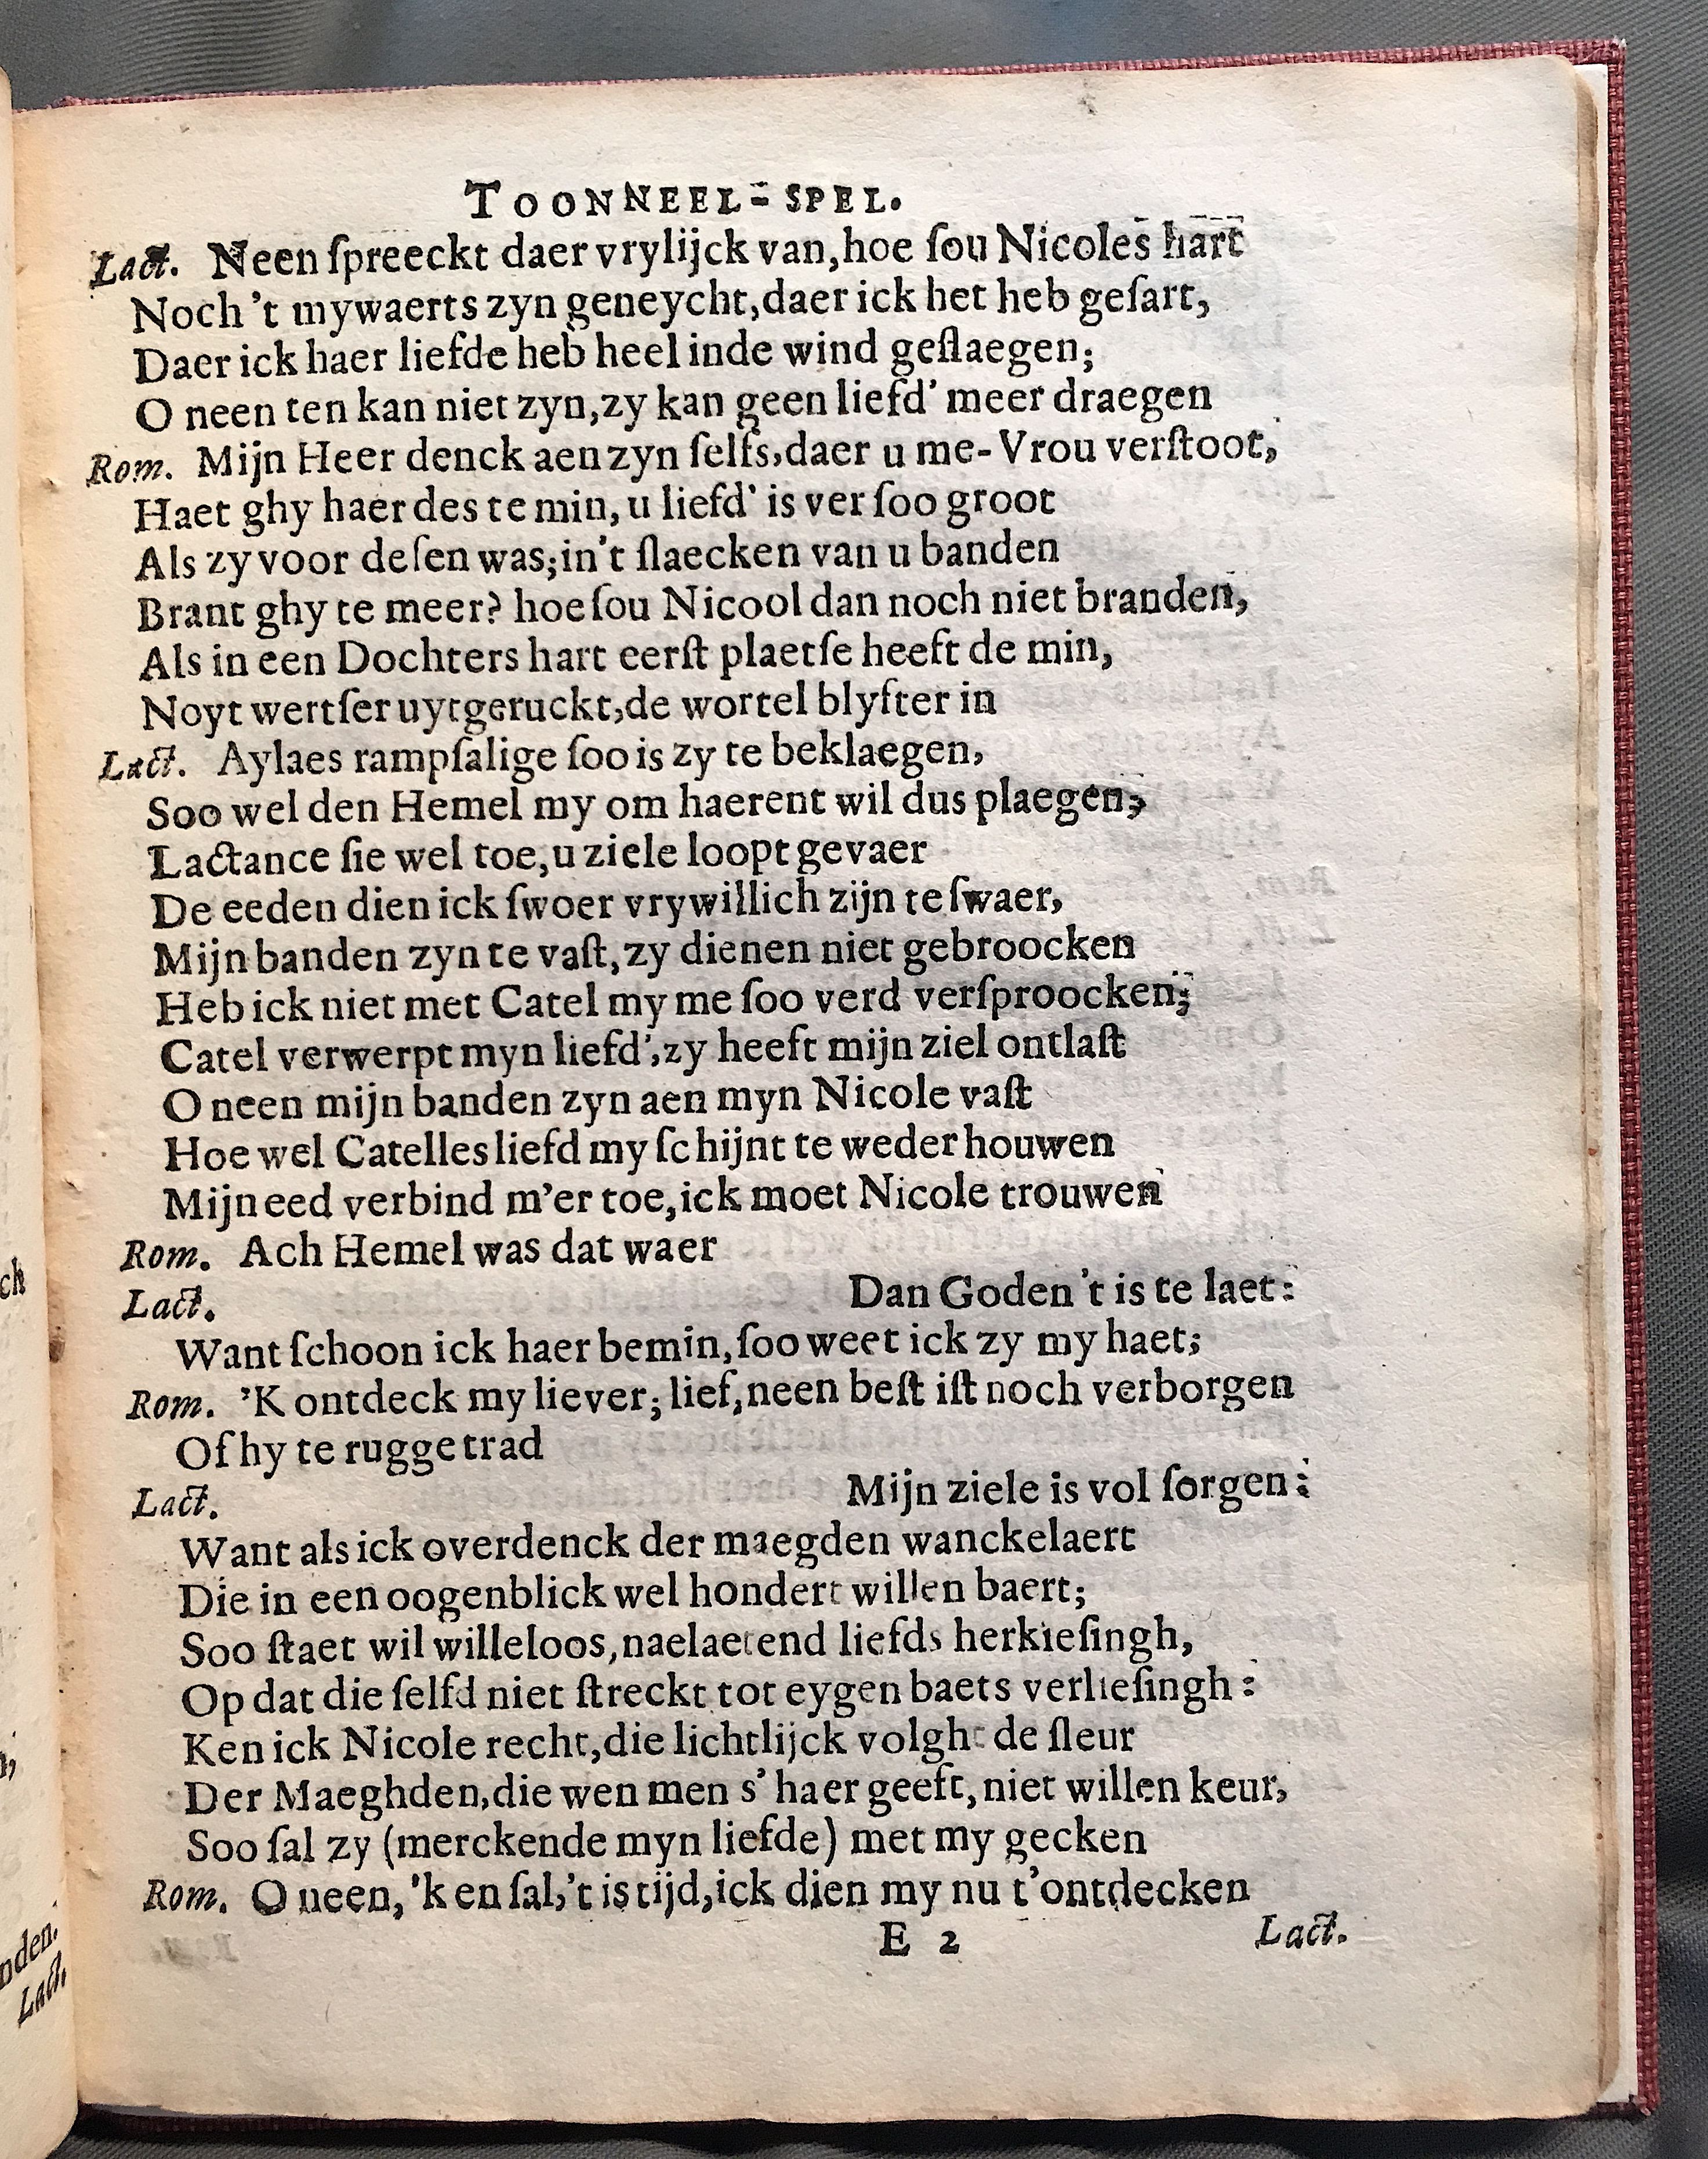 TOONNEEL-SPEL.
Lact. Neen ſpreeckt daer vrylijck van, hoe ſou Nicoles hart
Noch 't mywaerts zyn geneycht, daer ick het heb geſart,
Daer ick haer liefde heb heel inde wind geſlaegen;
O neen ten kan niet zyn, zy kan geen liefd' meer draegen
Rom. Mijn Heer denck aen zyn ſelfs, daer u me-Vrou verſtoot,
Haet ghy haer des te min, u liefd' is ver ſoo groot
Als zy voor deſen was; in't ſlaecken van u banden
Brant ghy te meer? hoe ſou Nicool dan noch niet branden,
Als in een Dochters hart eerſt plaetſe heeft de min,
Noyt wertſer uytgeruckt, de wortel blyfter in
Lact. Aylaes rampſalige ſoo is zy te beklaegen,
Soo wel den Hemel my om haerent wil dus plaegen;
Lactance ſie wel toe, u ziele loopt gevaer
De eeden dien ick ſwoer vrywillich zijn te ſwaer,
Mijn banden zyn te vaſt, zy dienen niet gebroocken
Heb ick niet met Catel my me ſoo verd verſproocken;
Catel verwerpt myn liefd', zy heeft mijn ziel ontlaſt
O neen mijn banden zyn aen myn Nicole vaſt
Hoe wel Catelles liefd my ſchijnt te wederhouwen
Mijn eed verbind m'er toe, ick moet Nicole trouwen
Rom. Ach Hemel was dat waer
Lact. Dan Goden 't is te laet:
Want ſchoon ick haer bemin, ſoo weet ick zy my haet;
Rom. 'K ontdeck my liever; lief, neen beſt iſt noch verborgen
Of hy te rugge trad
Lact. Mijn ziele is vol ſorgen:
Want als ick overdenck der maegden wanckelaert
Die in een oogenblick wel hondert willen baert;
Soo ſtaet wil willeloos, naelaetend liefds herkieſingh,
Op dat die ſelfd niet ſtreckt tot eygen baets verlieſingh:
Ken ick Nicole recht, die lichtlijck volght de ſleur
Der Maeghden, die wen men s' haer geeft, niet willen keur,
Soo ſal zy (merckende myn liefde) met my gecken
Rom. O neen, 'k en ſal, 't is tijd, ick dien my nu t'ontdecken
E 2 Lact.